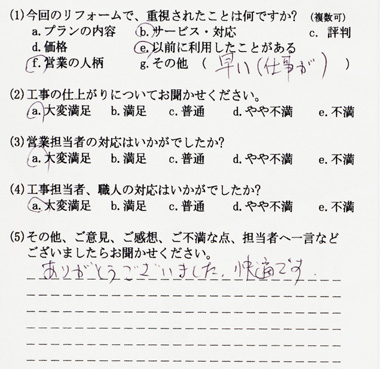 (1)今回のリフォームで、重視されたことは何ですか? (複数可)
a.プランの内容 b.サービス・対応 c. 評判
d.価格 e.以前に利用したことがある
f.営業の人柄 g.その他 ( 早い(仕事が) )
(2)工事の仕上がりについてお聞かせください。
a.大変満足 b.満足 c.普通 d.やや不満 e.不満
(3)営業担当者の対応はいかがでしたか?
a.大変満足 b.満足 c.普通 d.やや不満 e.不満
(4)工事担当者、職人の対応はいかがでしたか?
a.大変満足 b.満足 c.普通 d.やや不満 e.不満
(5)その他、ご意見、ご感想、ご不満な点、担当者へ一言など
ございましたらお聞かせください。
ありがとうございました。快適です.